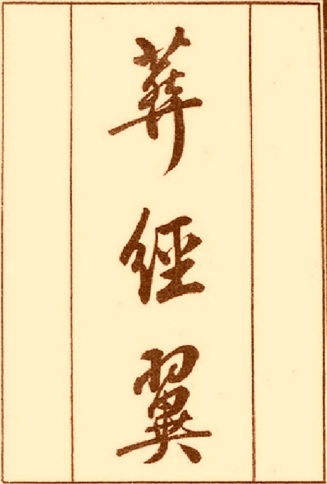 葬經翼